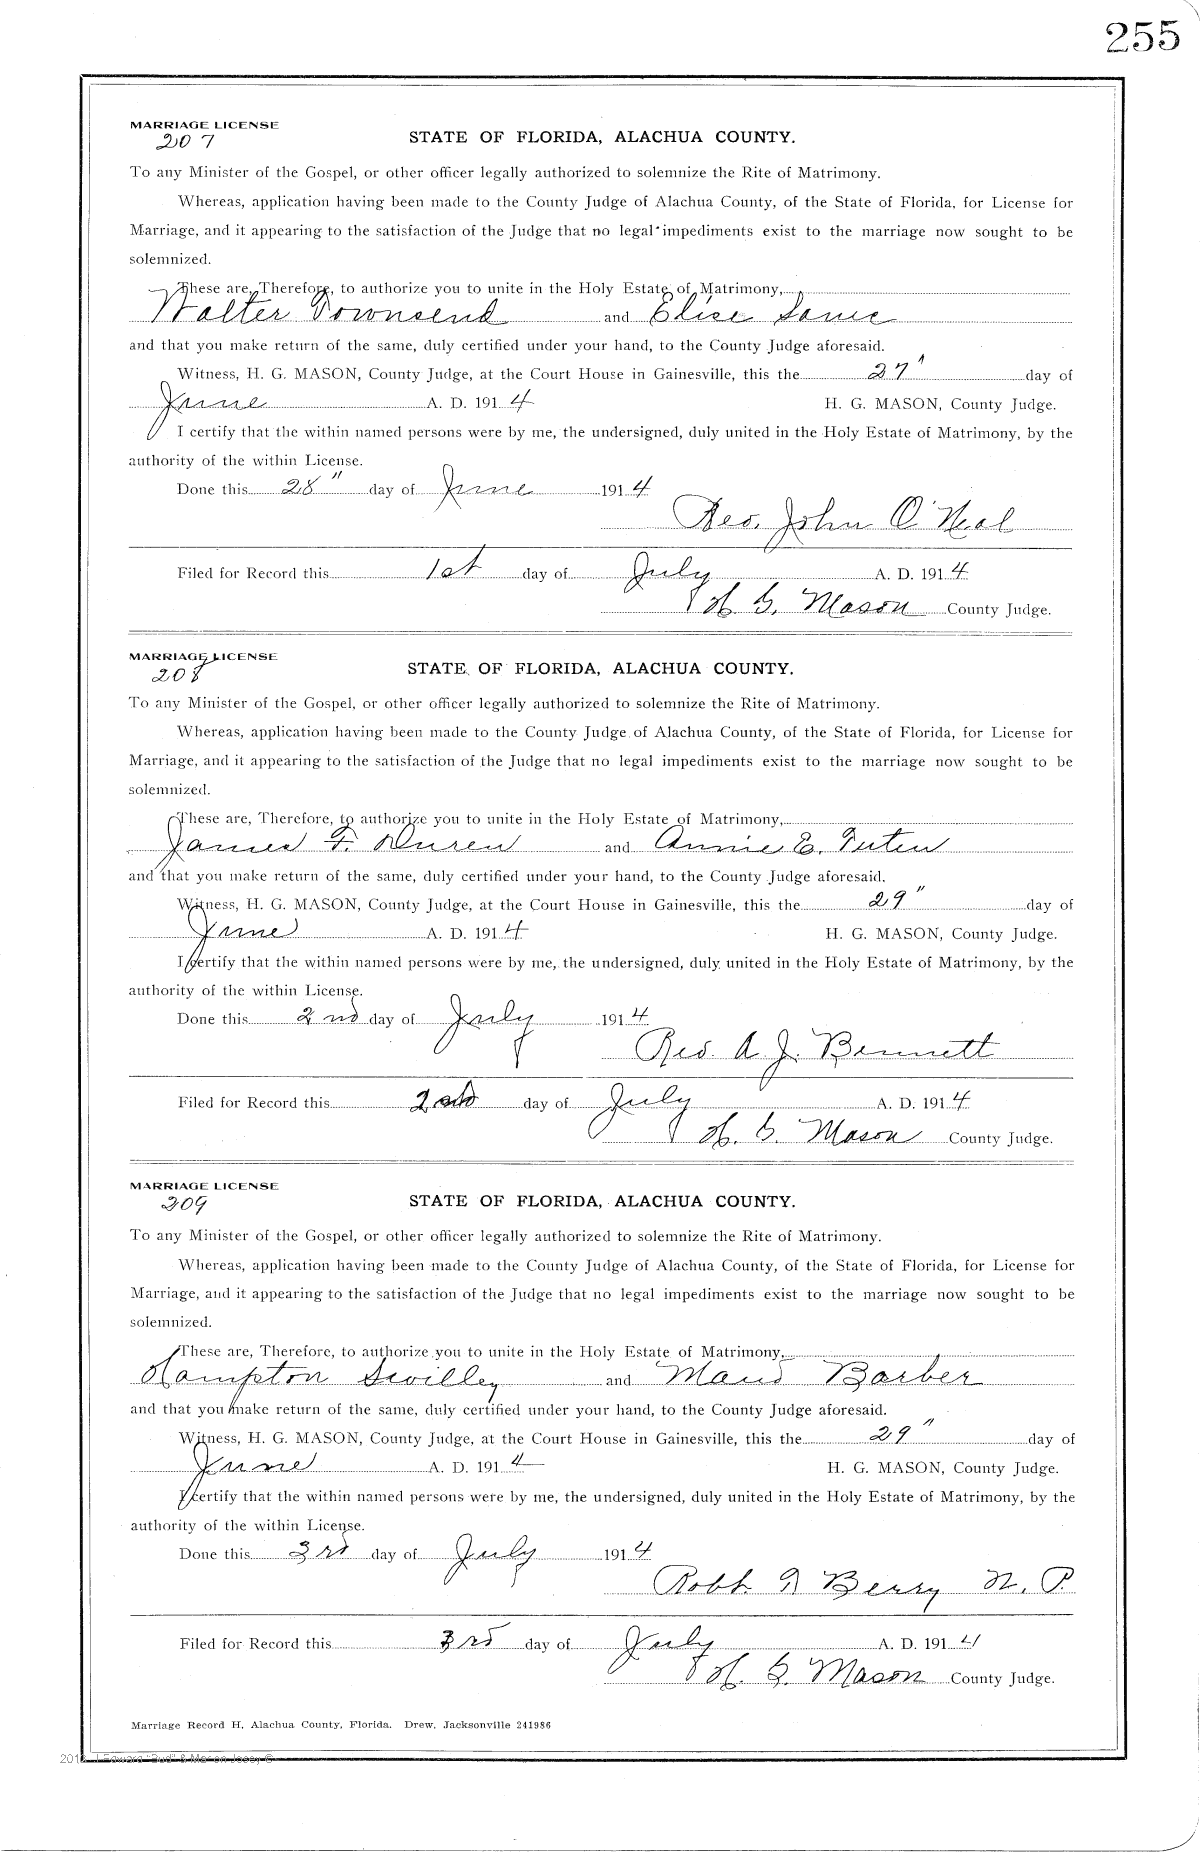 255
MARRIAGE LICENSE
207
STATE OF FLORIDA, ALACHUA COUNTY.
To any Minister of the Gospel, or other officer legally authorized to solemnize the Rite of Matrimony.
Whereas, application having been made to the County Judge of Alachua County, of the State of Florida, for License for
Marriage, and it appearing to the satisfaction of the Judge that no legal impediments exist to the marriage now sought to be
solemnized.
These are, Therefore, to authorize you to unite in the Holy Estate of Matrimony,
Walter Townsend and Elise
and that you make return of the same, duly certified under your hand, to the County Judge aforesaid.
Witness, H. G. MASON, County Judge, at the Court House in Gainesville, this the 27" day of
June A. D. 1914 H. G. MASON, County Judge.
I certify that the within named persons were by me, the undersigned, duly united in the Holy Estate of Matrimony, by the
authority of the within License.
Done this 28" day of June 1914
Rev. John O'Neal
Filed for Record this 1st day of July A. D. 1914
H. G. Mason County Judge.
MARRIAGE LICENSE
208
STATE OF FLORIDA, ALACHUA COUNTY.
To any Minister of the Gospel, or other officer legally authorized to solemnize the Rite of Matrimony.
Whereas, application having been made to the County Judge of Alachua County, of the State of Florida, for License for
Marriage, and it appearing to the satisfaction of the Judge that no legal impediments exist to the marriage now sought to be
solemnized.
These are, Therefore, to authorize you to unite in the Holy Estate of Matrimony,
James F. Duren and Annie E. Tuten
and that you make return of the same, duly certified under your hand, to the County Judge aforesaid.
Witness, H. G. MASON, County Judge, at the Court House in Gainesville, this the 29" day of
June A. D. 1914 H. G. MASON, County Judge.
I certify that the within named persons were by me, the undersigned, duly united in the Holy Estate of Matrimony, by the
authority of the within License.
Done this 2nd day of July 1914
Rev. A. J. Bennett
Filed for Record this 2nd day of July A. D. 1914
H. G. Mason County Judge.
MARRIAGE LICENSE
209
STATE OF FLORIDA, ALACHUA COUNTY.
To any Minister of the Gospel, or other officer legally authorized to solemnize the Rite of Matrimony.
Whereas, application having been made to the County Judge of Alachua County, of the State of Florida, for License for
Marriage, and it appearing to the satisfaction of the Judge that no legal impediments exist to the marriage now sought to be
solemnized.
These are, Therefore, to authorize you to unite in the Holy Estate of Matrimony,
Hampton Swilley and Maud Barber
and that you make return of the same, duly certified under your hand, to the County Judge aforesaid.
Witness, H. G. MASON, County Judge, at the Court House in Gainesville, this the 29" day of
June A. D. 1914 H. G. MASON, County Judge.
I certify that the within named persons were by me, the undersigned, duly united in the Holy Estate of Matrimony, by the
authority of the within License.
Done this 3rd day of July 1914
Robt. Berry N. P.
Filed for Record this 3rd day of July A. D. 1914
H. G. Mason County Judge.
Marriage Record H, Alachua County, Florida. Drew, Jacksonville 241986